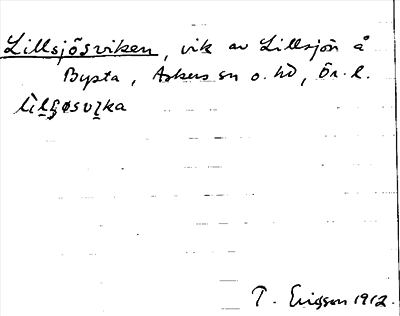 Lillsjösviken, vik av Lillsjön å
Bysta, Askers sn o. hd, Ör. l.
lìlʂøsvɪka
T. Ericsson 1912.